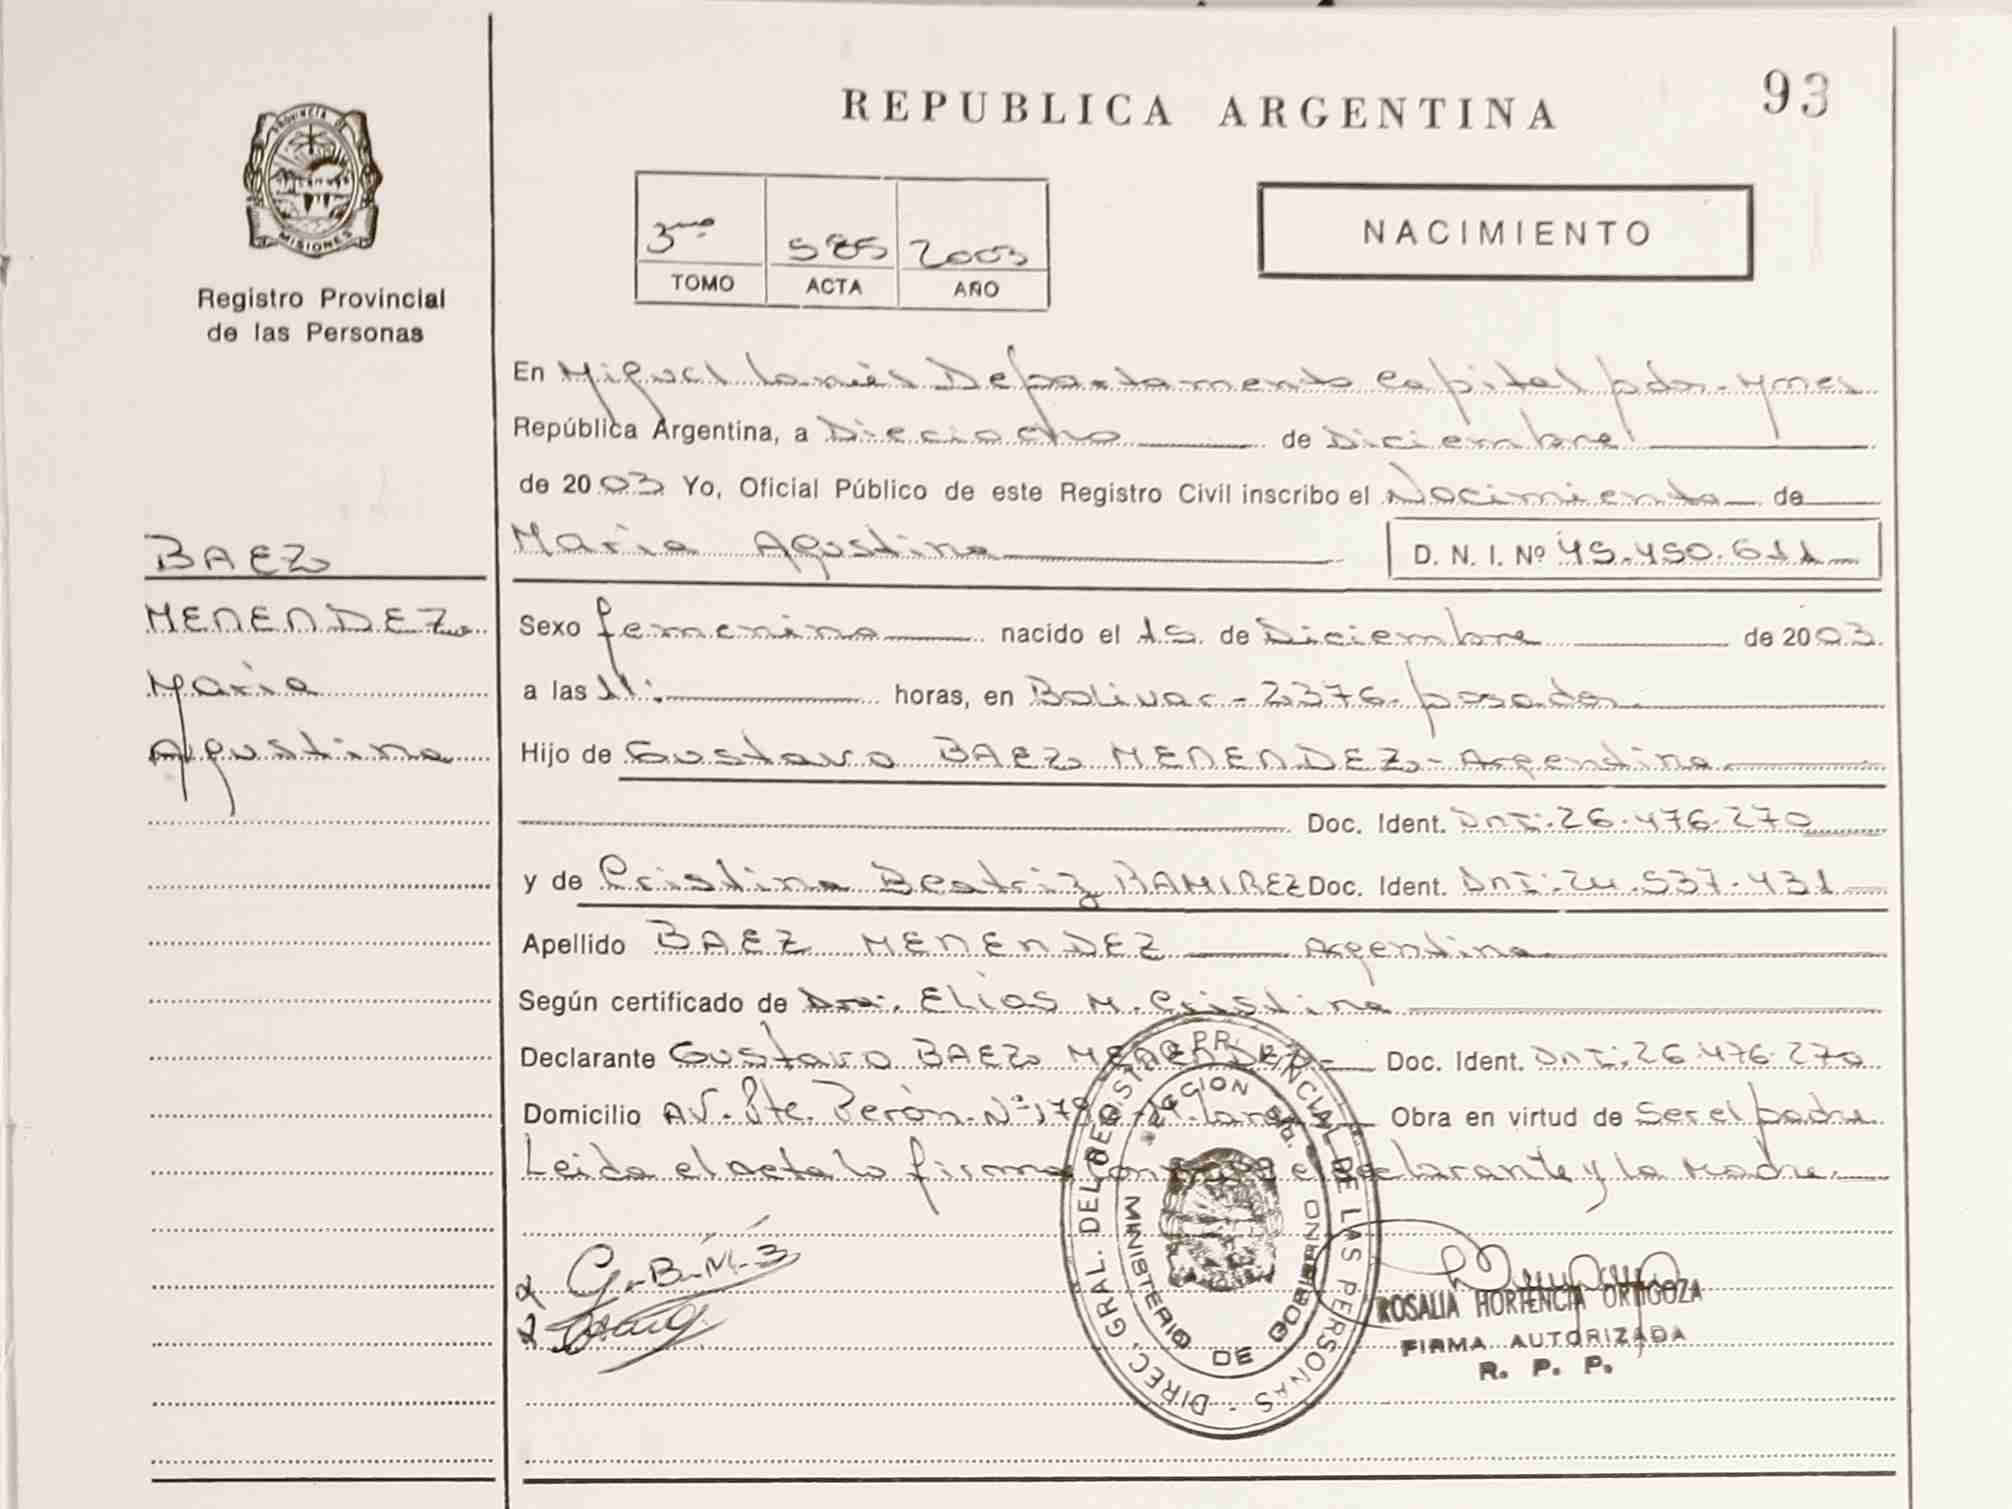 REPUBLICA ARGENTINA
93
PROVINCIA DE
MISIONES
Registro Provincial
de las Personas
3mo 585 2003
TOMO ACTA AÑO
NACIMIENTO
En Miguel Lanús Departamento Capital pdas.
República Argentina, a Dieciocho de Diciembre
de 2003 Yo, Oficial Público de este Registro Civil inscribo el Nacimiento de
Maria Agustina D. N. I. Nº 45.450.611
BAEZ
MENENDEZ
Maria
Agustina
Sexo femenino nacido el 15 de Diciembre de 2003
a las 11: horas, en Bolivar - 2376 - posadas
Hijo de Gustavo BAEZ MENENDEZ - Argentina
Doc. Ident. DNI: 26.476.270
y de Cristina Beatriz RAMIREZ Doc. Ident. DNI: 24.537.431
Apellido BAEZ MENENDEZ Argentina
Según certificado de Dra. Elias M. Cristina
Declarante Gustavo BAEZ MENENDEZ - Doc. Ident. DNI: 26.476.270
Domicilio AV. Pte. Perón Nº 1790 - M. Lanús Obra en virtud de Ser el padre
Leida el acta la firma conmigo el declarante y la Madre
G. B. M.
DIREC. GRAL. DEL REGISTRO PROVINCIAL DE LAS PERSONAS
MINISTERIO DE GOBIERNO
ROSALIA HORTENCIA ORTIGOZA
FIRMA AUTORIZADA
R. P. P.